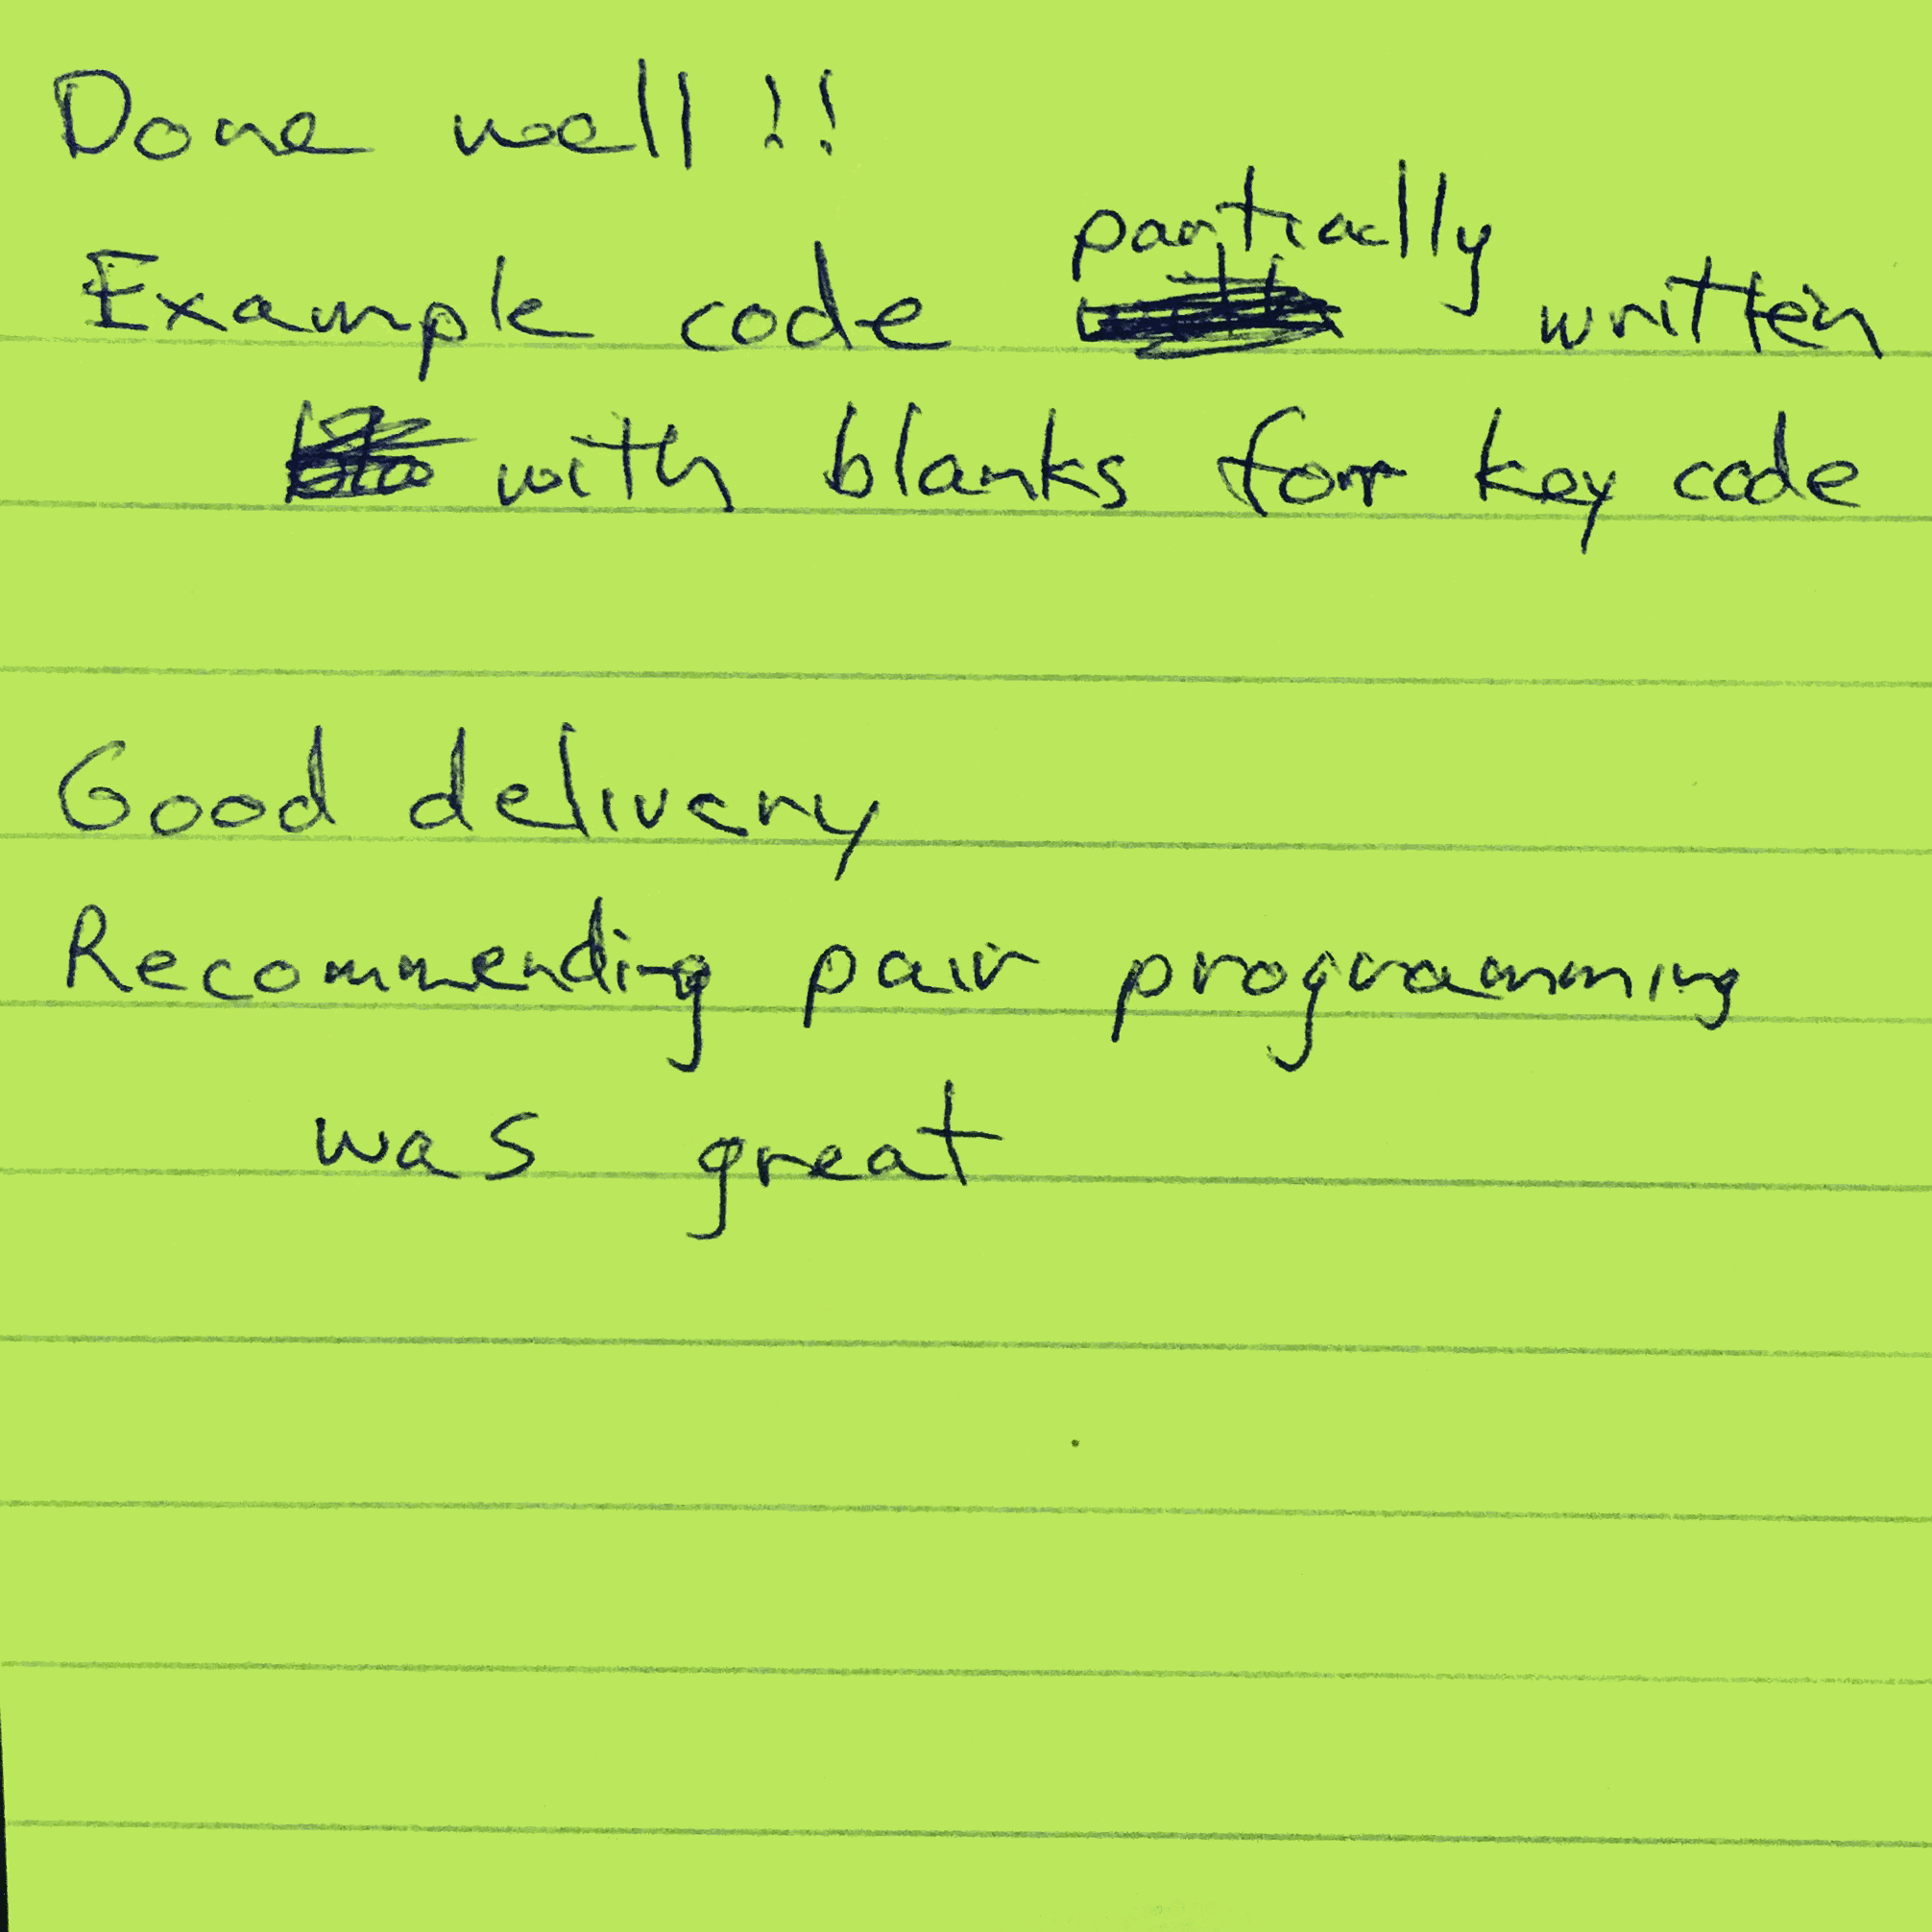 Done well!!
Example code partially written
with blanks for key code
Good delivery
Recommending pair programming
was great